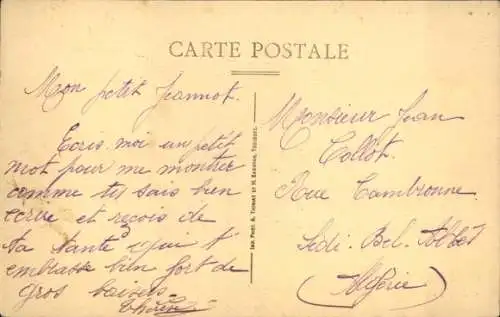 CARTE POSTALE
Mon petit Jeannot.
Ecris-moi un petit
mot pour me montrer
comme tu sais bien
écrire et reçois de
ta tante qui t'
embrasse bien fort de
gros baisers.
Monsieur Jean
Collot.
Rue Cambronne
Sidi-Bel-Abbès
(Algérie)